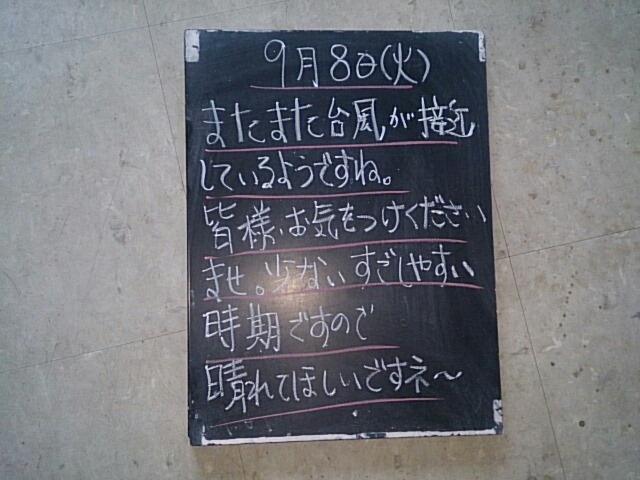 9月8日(火)
またまた台風が接近
しているようですね。
皆様、お気をつけください
ませ。少ない すごしやすい
時期ですので
晴れてほしいですネ〜